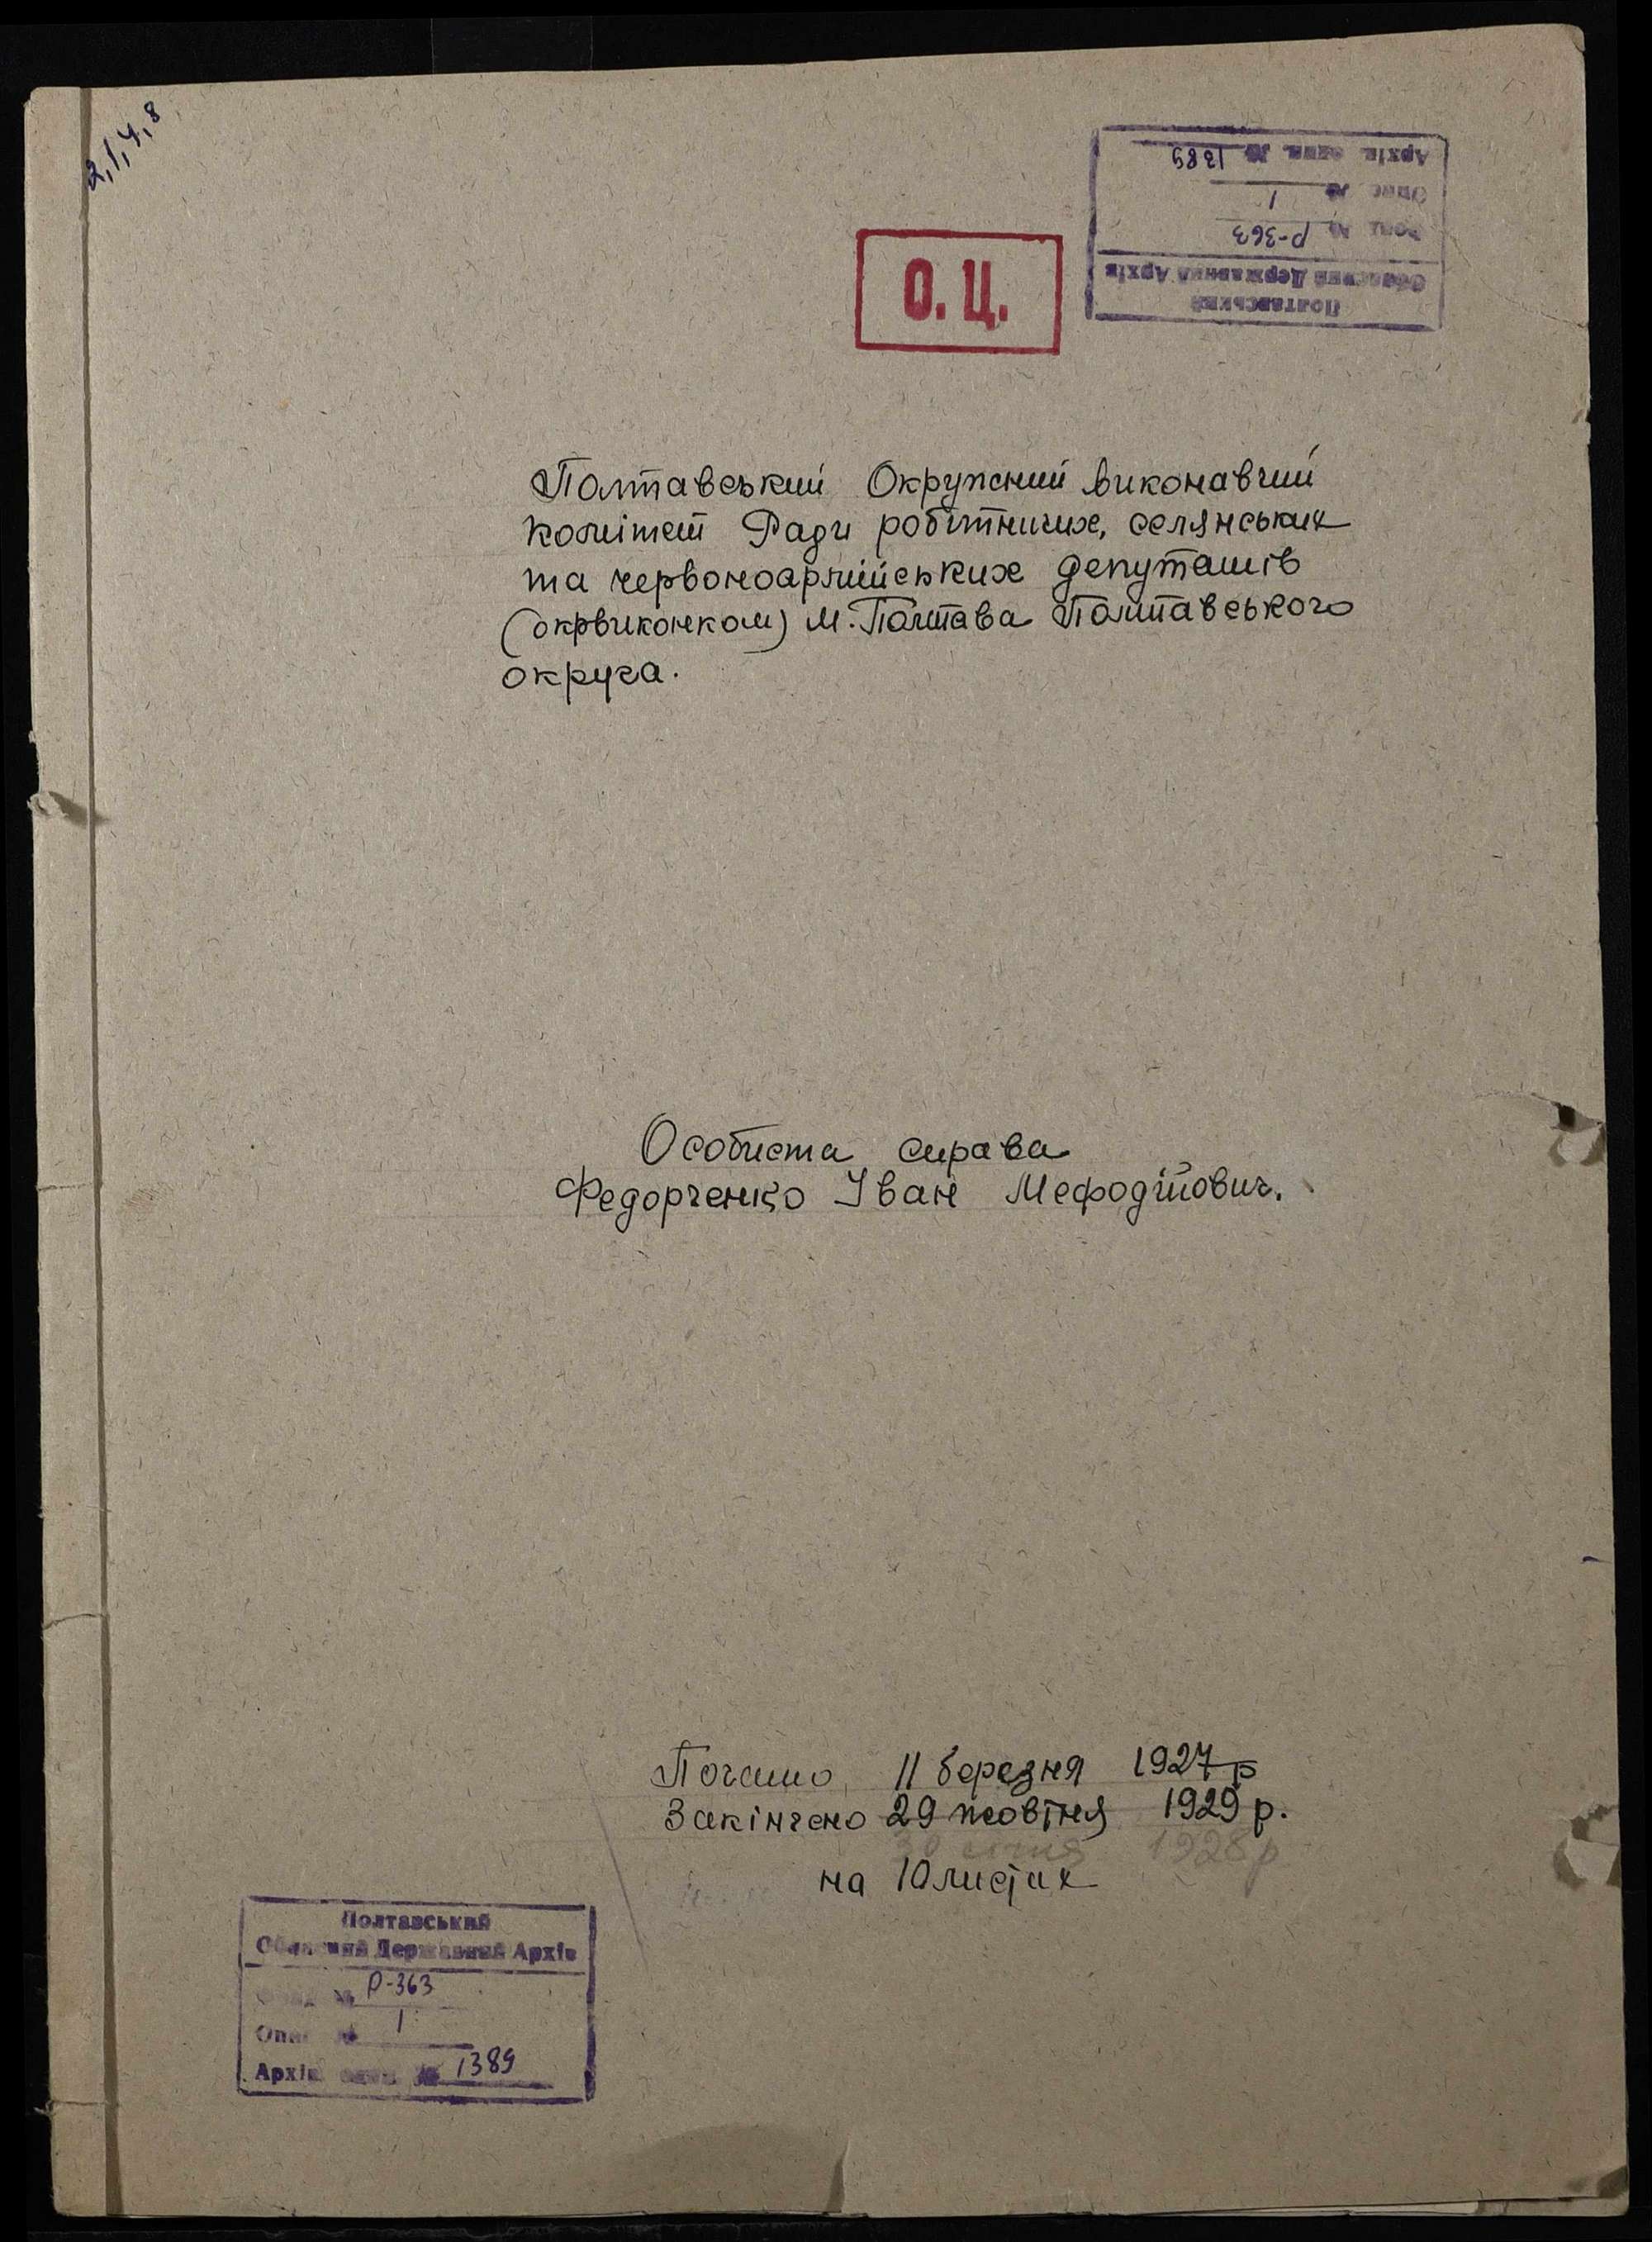 2,1,4,8
Полтавський
Обласний Державний Архів
Фонд № Р-363
Опис № 1
Архів. один. № 1389
О. Ц.
Полтавський Окружний виконавчий
комітет Ради робітничих, селянських
та червоноармійських депутатів
(окрвиконком) м. Полтава Полтавського
округа.
Особиста справа
Федорченко Іван Мефодійович.
Почато 11 березня 1927 р
Закінчено 29 жовтня 1929 р.
30 січня 1928 р
на 10 листах
Полтавський
Обласний Державний Архів
Фонд № Р-363
Опис № 1
Архів. один. № 1389